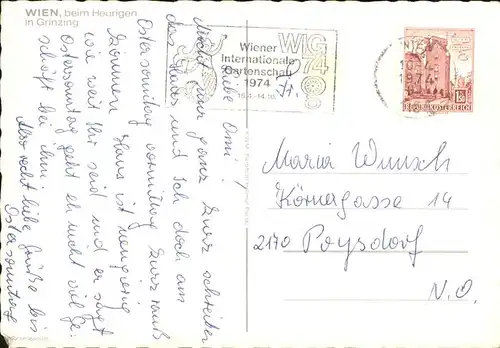 WIEN, beim Heurigen
in Grinzing
Wiener
Internationale
Gartenschau
1974
18.4.-14.10.
WIG
74
WIEN
10-4
1974
REPUBLIK ÖSTERREICH
Liebe Omi!
Nicht nur ganz kurz schreiben
daß und ich doch am
Ostersonntag vormittag kurz rauß
kommen. Hans ist neugierig
wie weit Ihr seid und er sagt
Ostersonntag geht eh nicht viel Ge-
schäft bei ihm.
Also recht liebe Grüße bis
Ostersonntag
Maria Wunsch
Körnergasse 14
2170 Poysdorf
N.Ö.